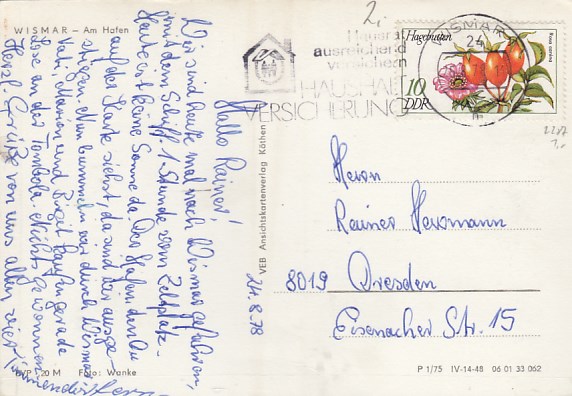 WISMAR – Am Hafen
Hallo Rainer!
Wir sind heute mal nach Wismar gefahren,
mit dem Schiff. 1 Stunde vom Zeltplatz.
Heute ist keine Sonne da. Der Hafen, den Du
auf der Karte siehst, da sind wir ausge-
stiegen. Nun bummeln wir durch Wismar.
Vati, Marion und Birgit kaufen gerade
Lose an der Tombola. Nichts gewonnen.
Herzl. Grüße von uns allen vier
24.8.78
VEB Ansichtskartenverlag Köthen
2,-
Hausrat
ausreichend
versichern
HAUSHALT
VERSICHERUNG
WISMAR
24
Hagebutten
Rosa canina
10
DDR
2287
1,-
Herrn
Rainer Herzmann
8019 Dresden
Eisenacher Str. 15
EVP -20 M Foto: Wanke
P 1/75 IV-14-48 06 01 33 062